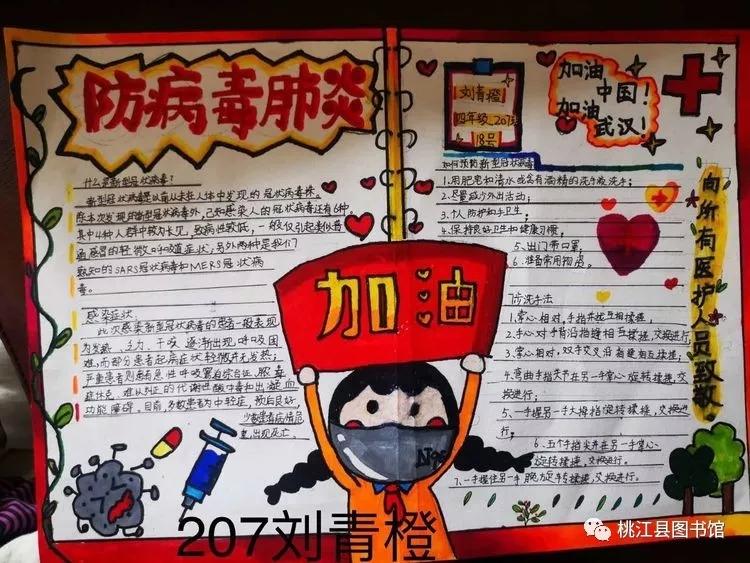 防病毒肺炎
什么是新型冠状病毒？
新型冠状病毒是以前从未在人体中发现的冠状病毒株。
除本次发现的新型冠状病毒外，已知感染人的冠状病毒还有6种。
其中4种人群中较为常见，致病性较低，一般仅引起类似普
通感冒的轻微呼吸道症状；另外两种是我们
熟知的SARS冠状病毒和MERS冠状病
毒。
感染症状
此次感染新型冠状病毒的患者一般表现
为发热、乏力、干咳、逐渐出现呼吸困
难；而部分患者起病症状轻微并无发热；
严重患者则患有急性呼吸窘迫综合征、脓毒
症休克、难以纠正的代谢性酸中毒和出凝血
功能障碍。目前，多数患者为中轻症，预后良好，
少数患者病情危
重，出现死亡。
刘青橙
四年级.207班
18号
加油
中国！
加油
武汉！
如何预防新型冠状病毒
1.用肥皂和清水或含有酒精的洗手液洗手；
2.尽量减少外出活动；
3.个人防护和手卫生；
4.保持良好卫生和健康习惯，
5、出门带口罩，
6.准备常用物资。
向所有医护人员致敬
加油
N95
洗手法
1、掌心相对，手指并拢互相揉搓，
2、手心对手背沿指缝相互揉搓，交换进行；
3、掌心相对，双手交叉沿指缝相互揉搓；
4、弯曲手指关节在另一手掌心旋转揉搓，交
换进行；
5、一手握另一手大拇指旋转揉搓，交换进
行；
6、五个手指尖并在另一手掌心
旋转揉搓，交换进行。
7、一手握住另一手腕力度手转揉搓，交换进行。
207刘青橙
桃江县图书馆